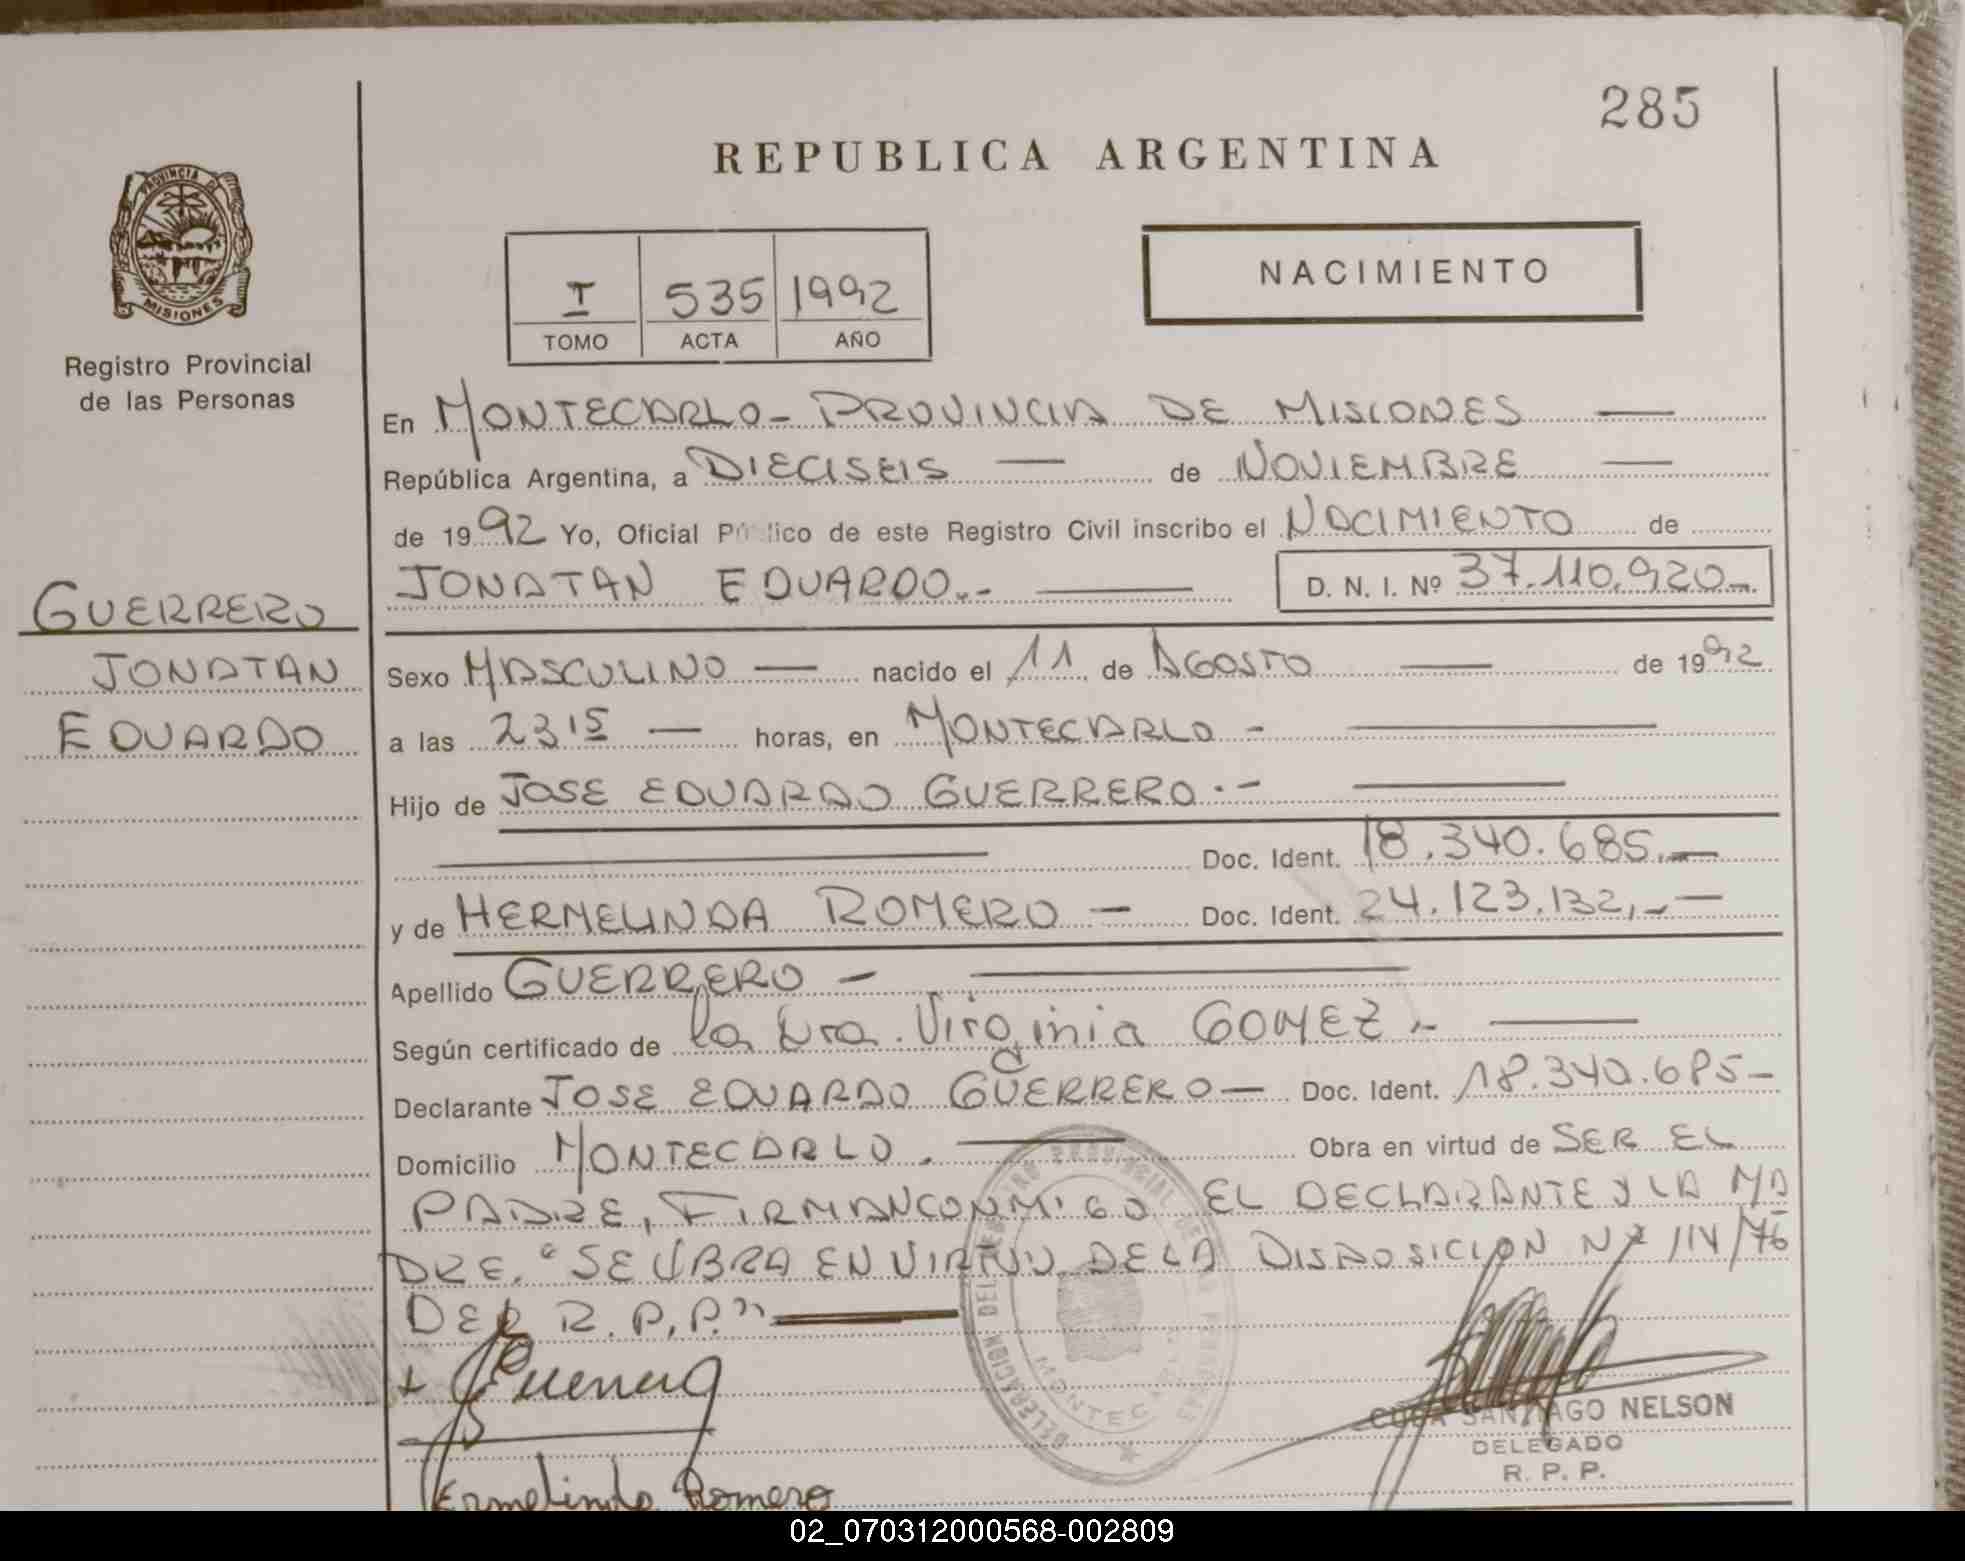 285
REPUBLICA ARGENTINA
PROVINCIA DE
MISIONES
Registro Provincial
de las Personas
I 535 1992
TOMO ACTA AÑO
NACIMIENTO
GUERRERO
JONATAN
EDUARDO
En MONTECARLO - PROVINCIA DE MISIONES
República Argentina, a DIECISEIS de NOVIEMBRE
de 1992 Yo, Oficial Público de este Registro Civil inscribo el NACIMIENTO de
JONATAN EDUARDO.- D. N. I. Nº 37.110.920-
Sexo MASCULINO nacido el 11 de AGOSTO de 1992
a las 23 15 horas, en MONTECARLO -
Hijo de JOSE EDUARDO GUERRERO.-
Doc. Ident. 18.340.685.-
y de HERMELINDA ROMERO - Doc. Ident. 24.123.132,-
Apellido GUERRERO -
Según certificado de la Dra. Virginia GOMEZ.-
Declarante JOSE EDUARDO GUERRERO - Doc. Ident. 18.340.685-
Domicilio MONTECARLO. Obra en virtud de SER EL
PADRE, FIRMAN CONMIGO EL DECLARANTE Y LA MA
DRE. "SE LIBRA EN VIRTUD DE LA DISPOSICION Nº 114/76
DEL R.P.P."
Guerrero
Ermelinda Romero
DELEGACION DEL REGISTRO PROVINCIAL DE LAS PERSONAS
MONTECARLO
SANTIAGO NELSON
DELEGADO
R. P. P.
02_070312000568-002809